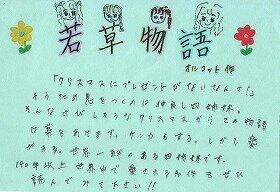 若草物語
オルコット作
「クリスマスにプレゼントがないなんて！」
そうため息をつくのは仲良し四姉妹。
そんなさびしそうなクリスマスからこの物語
は幕をあけます。ケンカもする、しかし愛
がある。世界一絆のある四姉妹です。
140年以上世界中で愛される名作をぜひ
読んでみて下さい!!